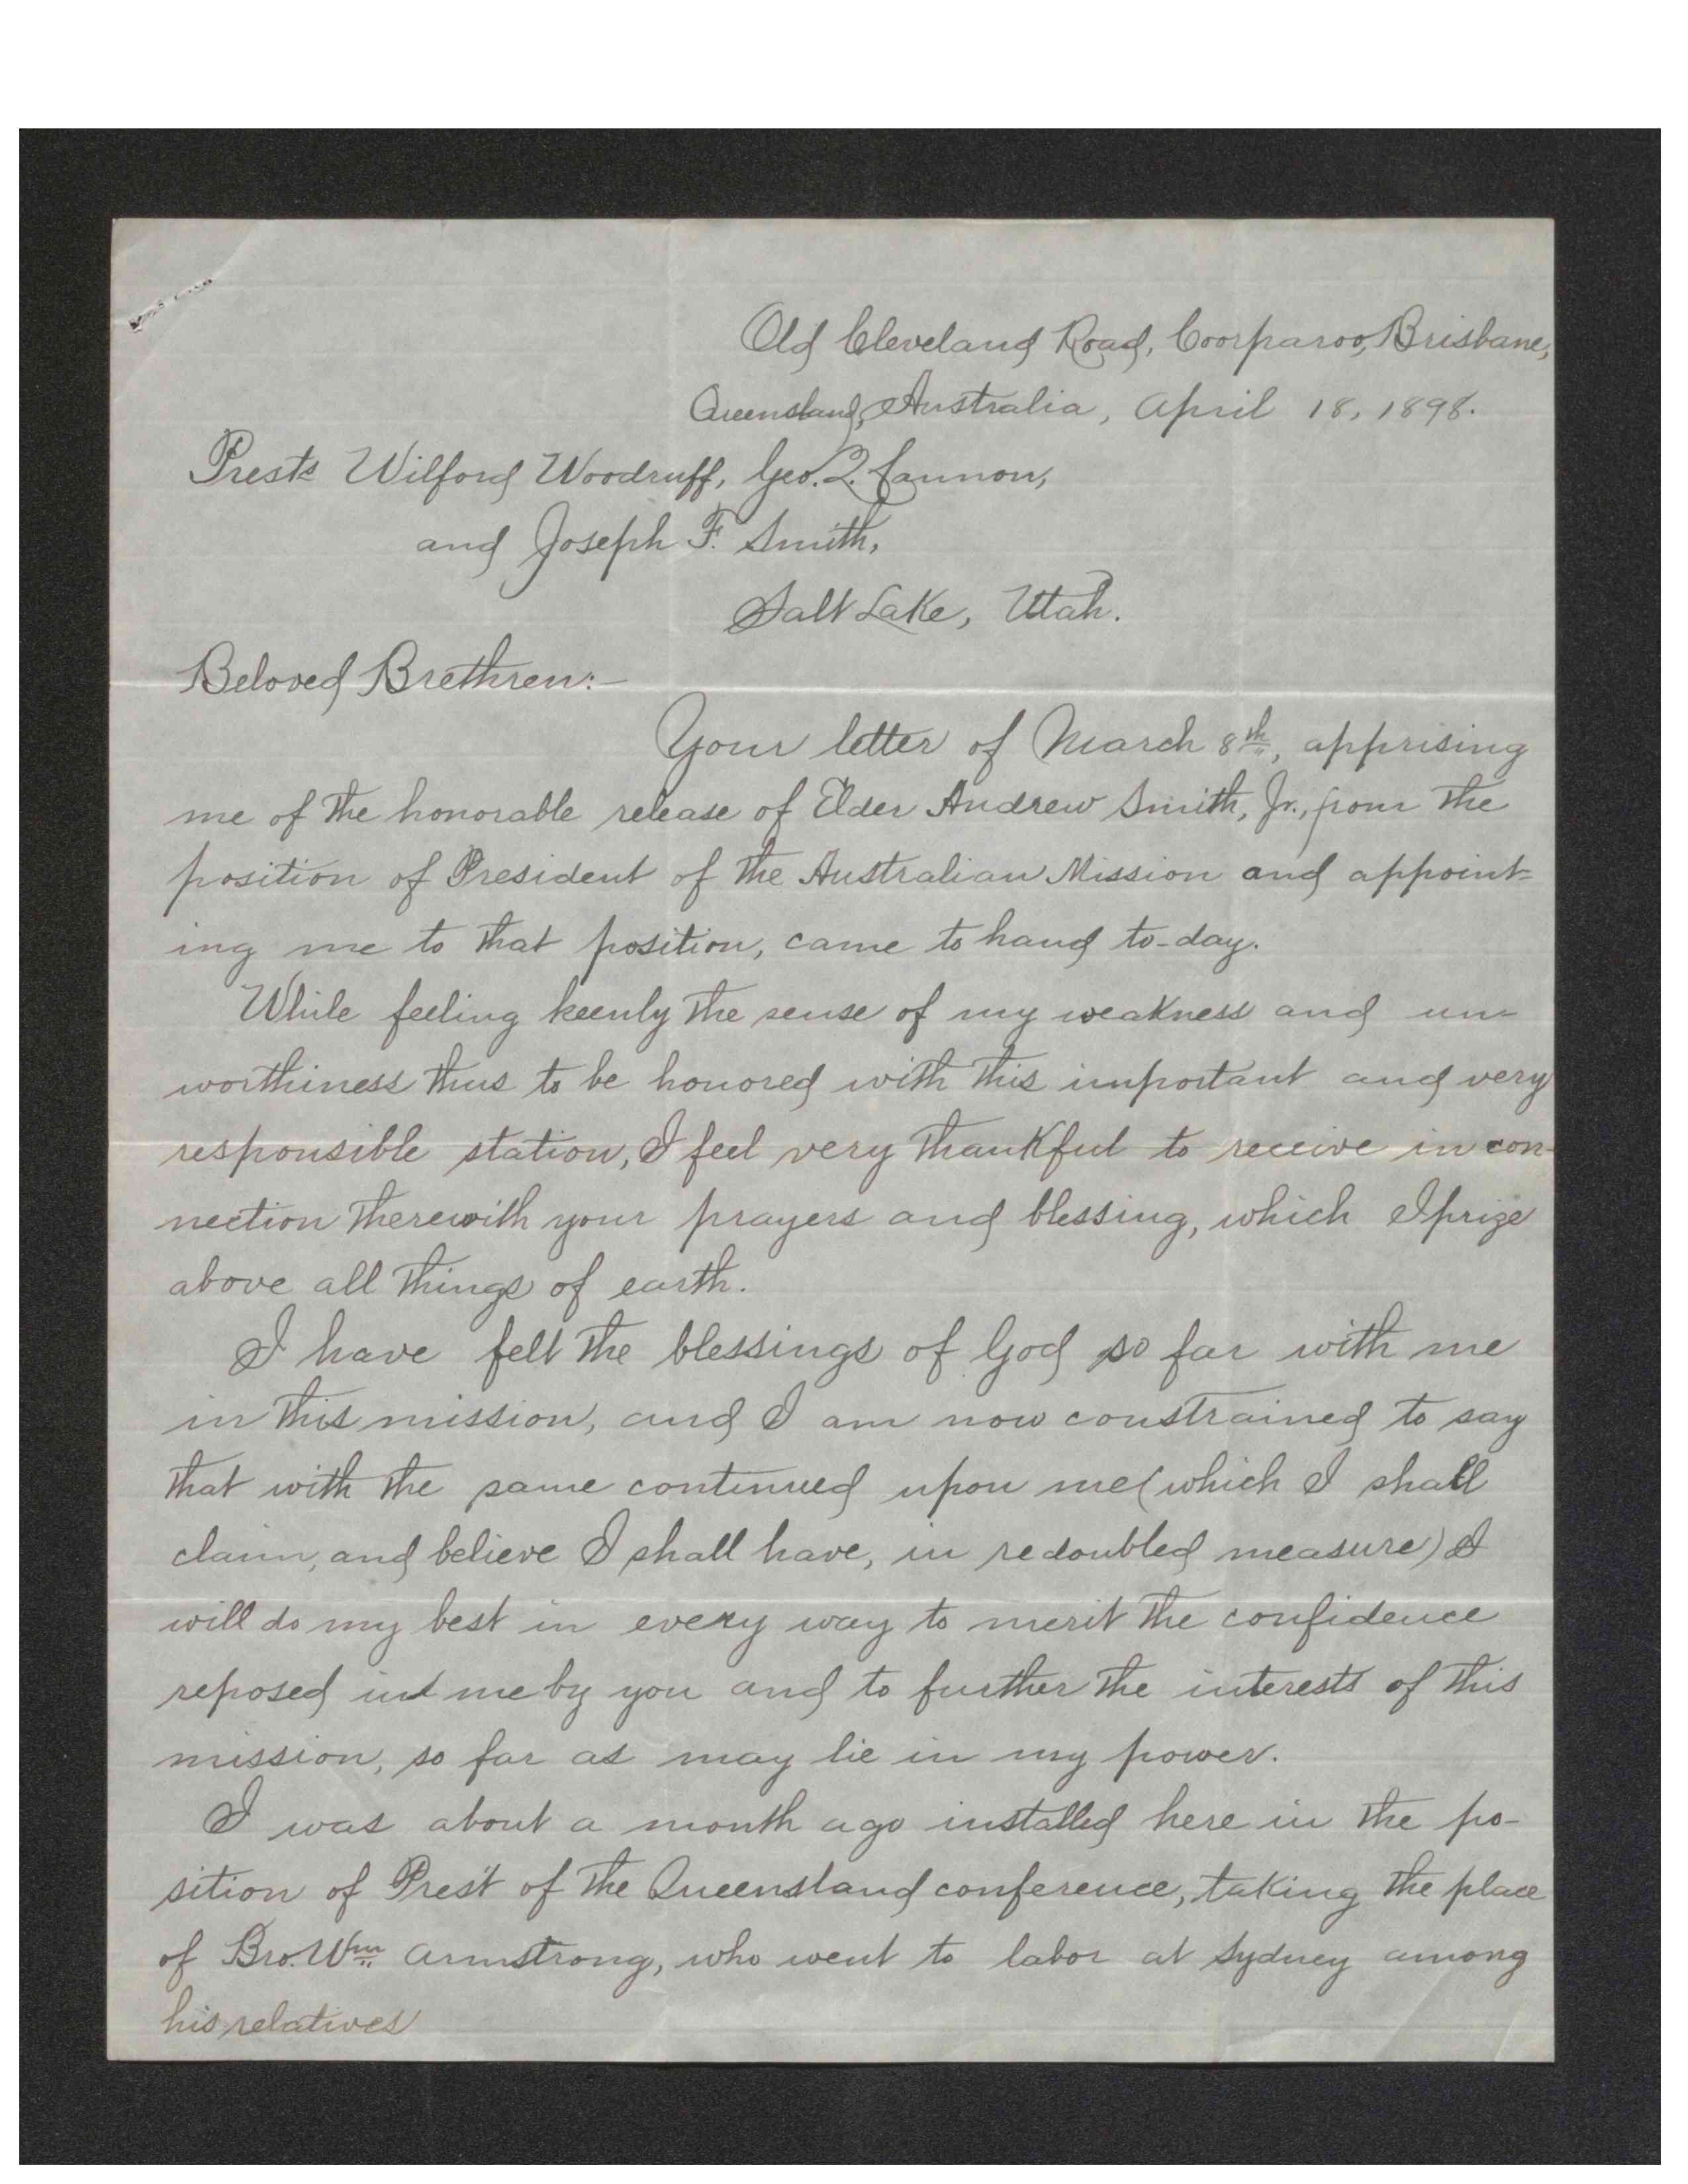 Old Cleveland Road, Coorparoo, Brisbane,
Queensland, Australia, April 18, 1898.
Prests Wilford Woodruff, Geo. Q. Cannon,
and Joseph F. Smith,
Salt Lake, Utah.
Beloved Brethren:-
Your letter of March 8th, apprising
me of the honorable release of Elder Andrew Smith, Jr., from the
position of President of the Australian Mission and appoint-
ing me to that position, came to hand to-day.
While feeling keenly the sense of my weakness and un-
worthiness thus to be honored with this important and very
responsible station, I feel very thankful to receive in con-
nection therewith your prayers and blessing, which I prize
above all things of earth.
I have felt the blessings of God so far with me
in this mission, and I am now constrained to say
that with the same continued upon me (which I shall
claim, and believe I shall have, in redoubled measure) I
will do my best in every way to merit the confidence
reposed in me by you and to further the interests of this
mission, so far as may lie in my power.
I was about a month ago installed here in the po-
sition of Pres't of the Queensland conference, taking the place
of Bro. Wm Armstrong, who went to labor at Sydney among
his relatives